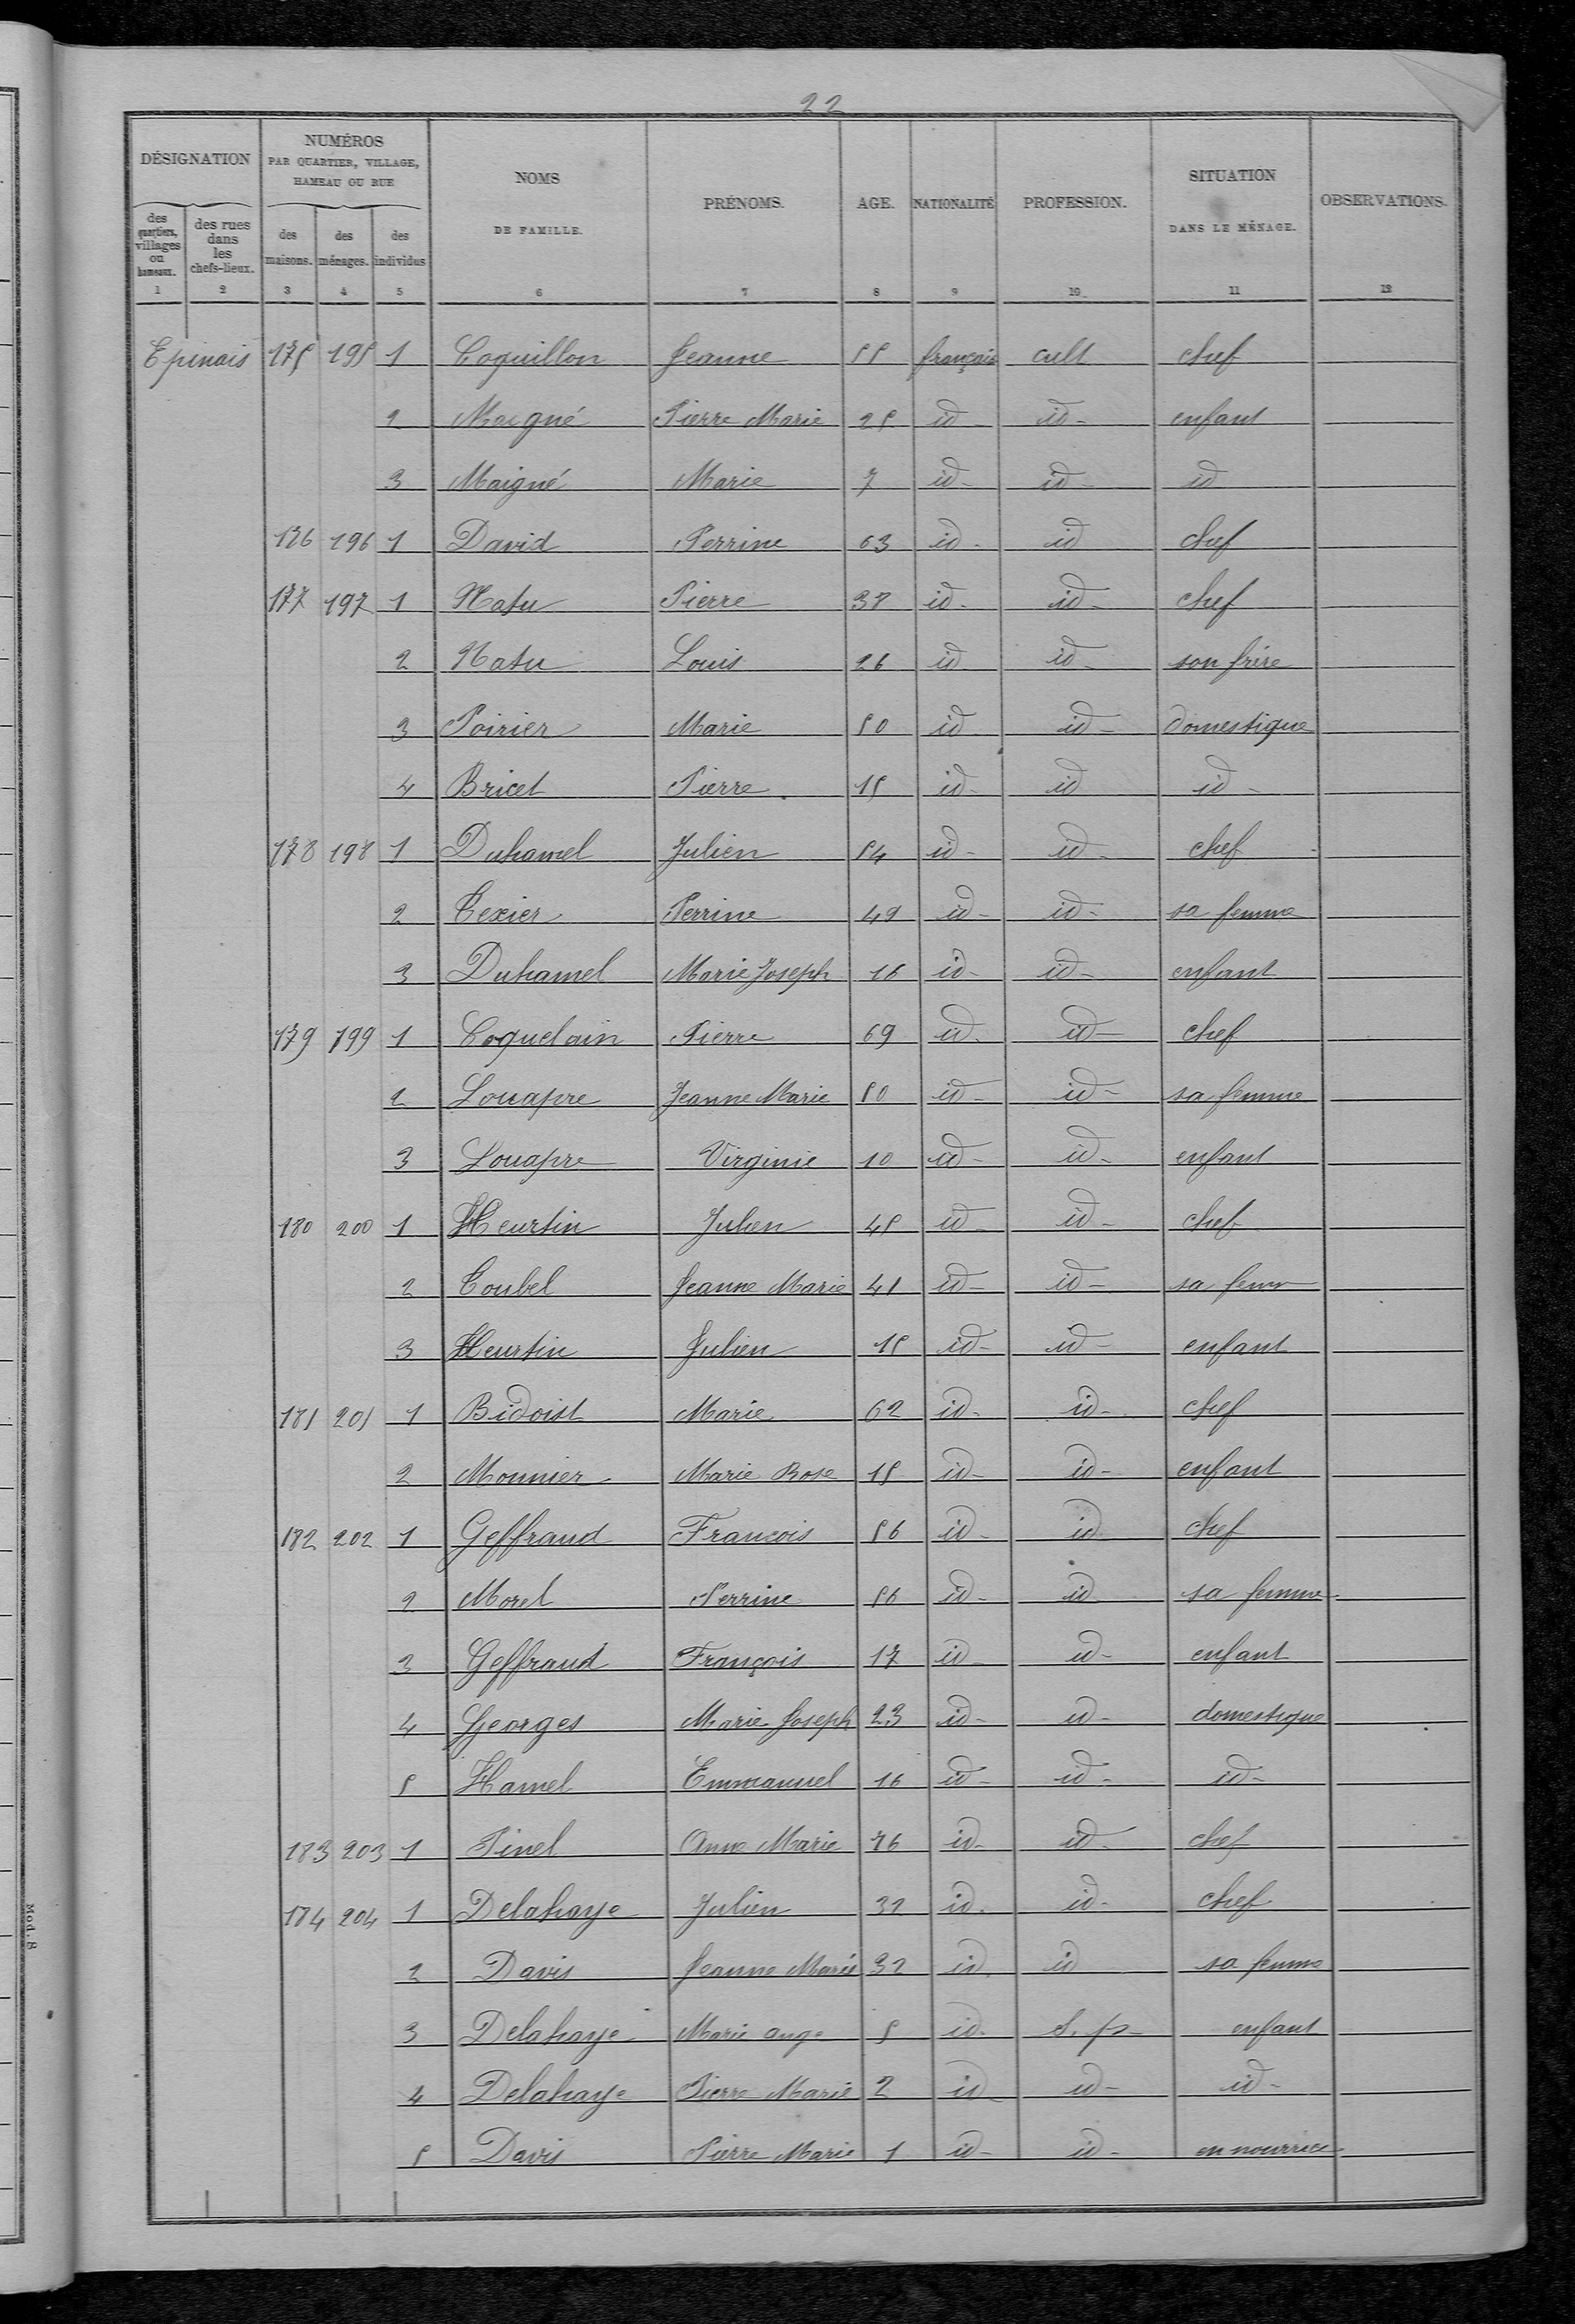 22
DÉSIGNATION NUMÉROS PAR QUARTIER, VILLAGE, HAMEAU OU RUE NOMS DE FAMILLE. PRÉNOMS. AGE. NATIONALITÉ PROFESSION. SITUATION DANS LE MÉNAGE. OBSERVATIONS.
des quartiers, villages ou hameaux. des rues dans les chefs-lieux. des maisons. des ménages. des individus
1 2 3 4 5 6 7 8 9 10 11 12
Epinais 175 195 1 Coquillon Jeanne 55 français cult chef
2 Maigné Pierre Marie 25 id id enfant
3 Maigné Marie 7 id id id
176 196 1 David Perrine 63 id id chef
177 197 1 Natu Pierre 38 id id chef
2 Natu Louis 26 id id son frère
3 Poirier Marie 50 id id domestique
4 Bricet Pierre 15 id id id
178 198 1 Duhamel Julien 54 id id chef
2 Texier Perrine 49 id id sa femme
3 Duhamel Marie Joseph 16 id id enfant
179 199 1 Coquelain Pierre 69 id id chef
2 Louapre Jeanne Marie 50 id id sa femme
3 Louapre Virginie 10 id id enfant
180 200 1 Heurtin Julien 45 id id chef
2 Toubel Jeanne Marie 41 id id sa femm
3 Heurtin Julien 15 id id enfant
181 201 1 Bidoist Marie 62 id id chef
2 Monnier Marie Rose 15 id id enfant
182 202 1 Geffraud Francois 56 id id chef
2 Morel Perrine 56 id id sa femme
3 Geffraud François 17 id id enfant
4 Georges Marie Joseph 23 id id domestique
5 Hamel Emmanuel 16 id id id
183 203 1 Pinel Anne Marie 76 id id chef
184 204 1 Delahaye Julien 32 id id chef
2 Davis Jeanne Marie 32 id id sa femme
3 Delahaye Marie ange 5 id s. p enfant
4 Delahaye Pierre Marie 2 id id id
5 Davis Pierre Marie 1 id id en nourrice
Mod. 8